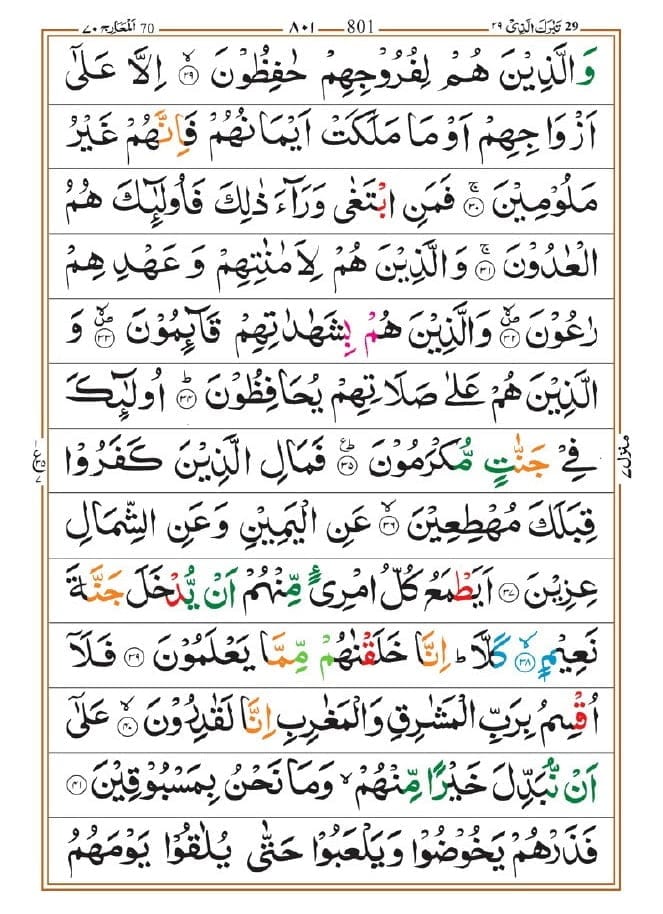 تَبٰرَكَ الَّذِیْ ٢٩ 29 801 ٨٠١ اَلْمَعَارِج ٧٠ 70
وَالَّذِیْنَ هُمْ لِفُرُوْجِهِمْ حٰفِظُوْنَ ۙ﴿۲۹﴾ اِلَّا عَلٰۤی
اَزْوَاجِهِمْ اَوْ مَا مَلَكَتْ اَیْمَانُهُمْ فَاِنَّهُمْ غَیْرُ
مَلُوْمِیْنَ ۚ﴿۳۰﴾ فَمَنِ ابْتَغٰی وَرَآءَ ذٰلِكَ فَاُولٰٓئِكَ هُمُ
الْعٰدُوْنَ ۚ﴿۳۱﴾ وَالَّذِیْنَ هُمْ لِاَمٰنٰتِهِمْ وَعَهْدِهِمْ
رٰعُوْنَ ۪ۙ﴿۳۲﴾ وَالَّذِیْنَ هُمْ بِشَهٰدٰتِهِمْ قَآئِمُوْنَ ۪ۙ﴿۳۳﴾ وَ
الَّذِیْنَ هُمْ عَلٰی صَلَاتِهِمْ یُحَافِظُوْنَ ؕ﴿۳۴﴾ اُولٰٓئِكَ
فِیْ جَنّٰتٍ مُّكْرَمُوْنَ ؕ٪﴿۳۵﴾ فَمَالِ الَّذِیْنَ كَفَرُوْا
قِبَلَكَ مُهْطِعِیْنَ ۙ﴿۳۶﴾ عَنِ الْیَمِیْنِ وَعَنِ الشِّمَالِ
عِزِیْنَ ﴿۳۷﴾ اَیَطْمَعُ كُلُّ امْرِئٍ مِّنْهُمْ اَنْ یُّدْخَلَ جَنَّةَ
نَعِیْمٍ ۙ﴿۳۸﴾ كَلَّا ؕ اِنَّا خَلَقْنٰهُمْ مِّمَّا یَعْلَمُوْنَ ﴿۳۹﴾ فَلَاۤ
اُقْسِمُ بِرَبِّ الْمَشٰرِقِ وَالْمَغٰرِبِ اِنَّا لَقٰدِرُوْنَ ۙ﴿۴۰﴾ عَلٰۤی
اَنْ نُّبَدِّلَ خَیْرًا مِّنْهُمْ ۙ وَمَا نَحْنُ بِمَسْبُوْقِیْنَ ﴿۴۱﴾
فَذَرْهُمْ یَخُوْضُوْا وَیَلْعَبُوْا حَتّٰی یُلٰقُوْا یَوْمَهُمُ
منزل ٧